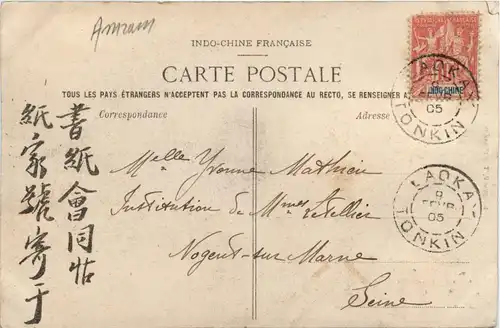 Annam
INDO-CHINE FRANÇAISE
CARTE POSTALE
TOUS LES PAYS ÉTRANGERS N'ACCEPTENT PAS LA CORRESPONDANCE AU RECTO, SE RENSEIGNER A
Correspondance
Adresse
INDO-CHINE
LAOKAY
05
TONKIN
LAOKAY
9
FEVR
05
TONKIN
Melle Yvonne Mathieu
Institution de Mmes Letellier
Nogent-sur Marne
Seine
書紙會同帖
紙家號寄于